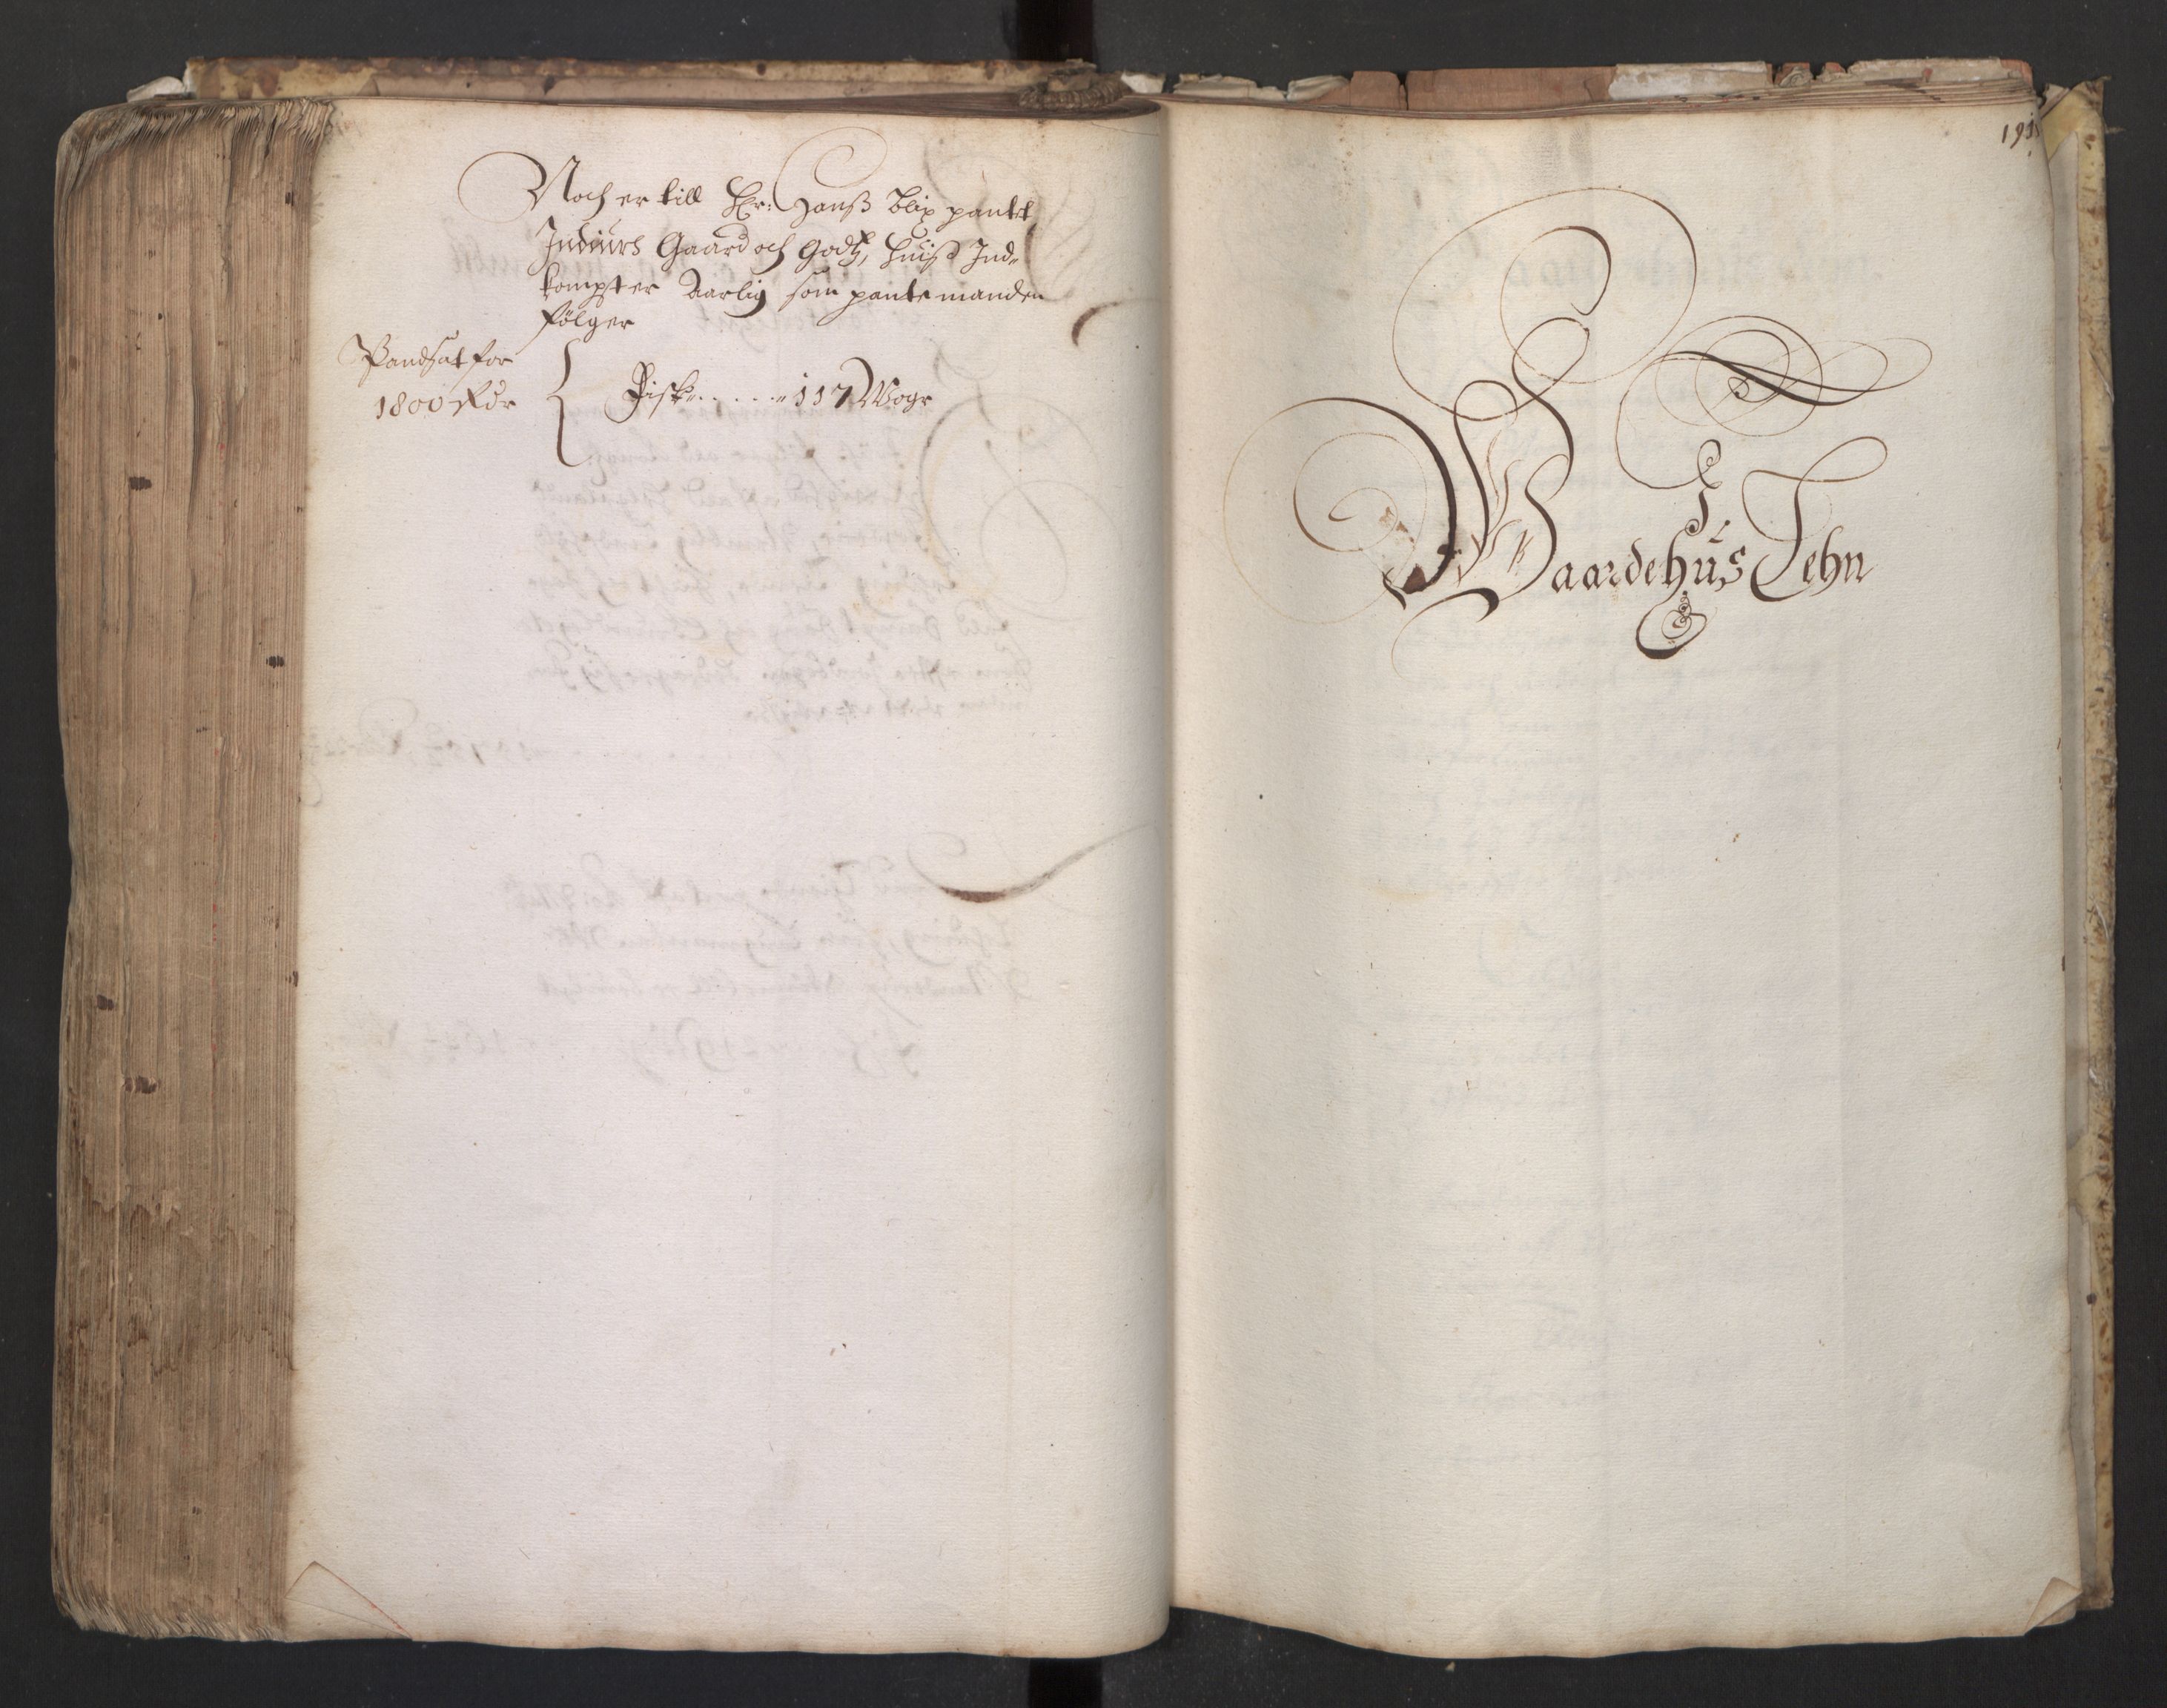 Noch er till Hr: Hanß Blix pantet
Indiurs Gaard och Godtz, huiß Ind-
kompster Aarlig som pantemanden
følger
Pandsat for
1800 Rdr
Fisk . . . . . 117 Woger
191
I
Waardehus Lehn